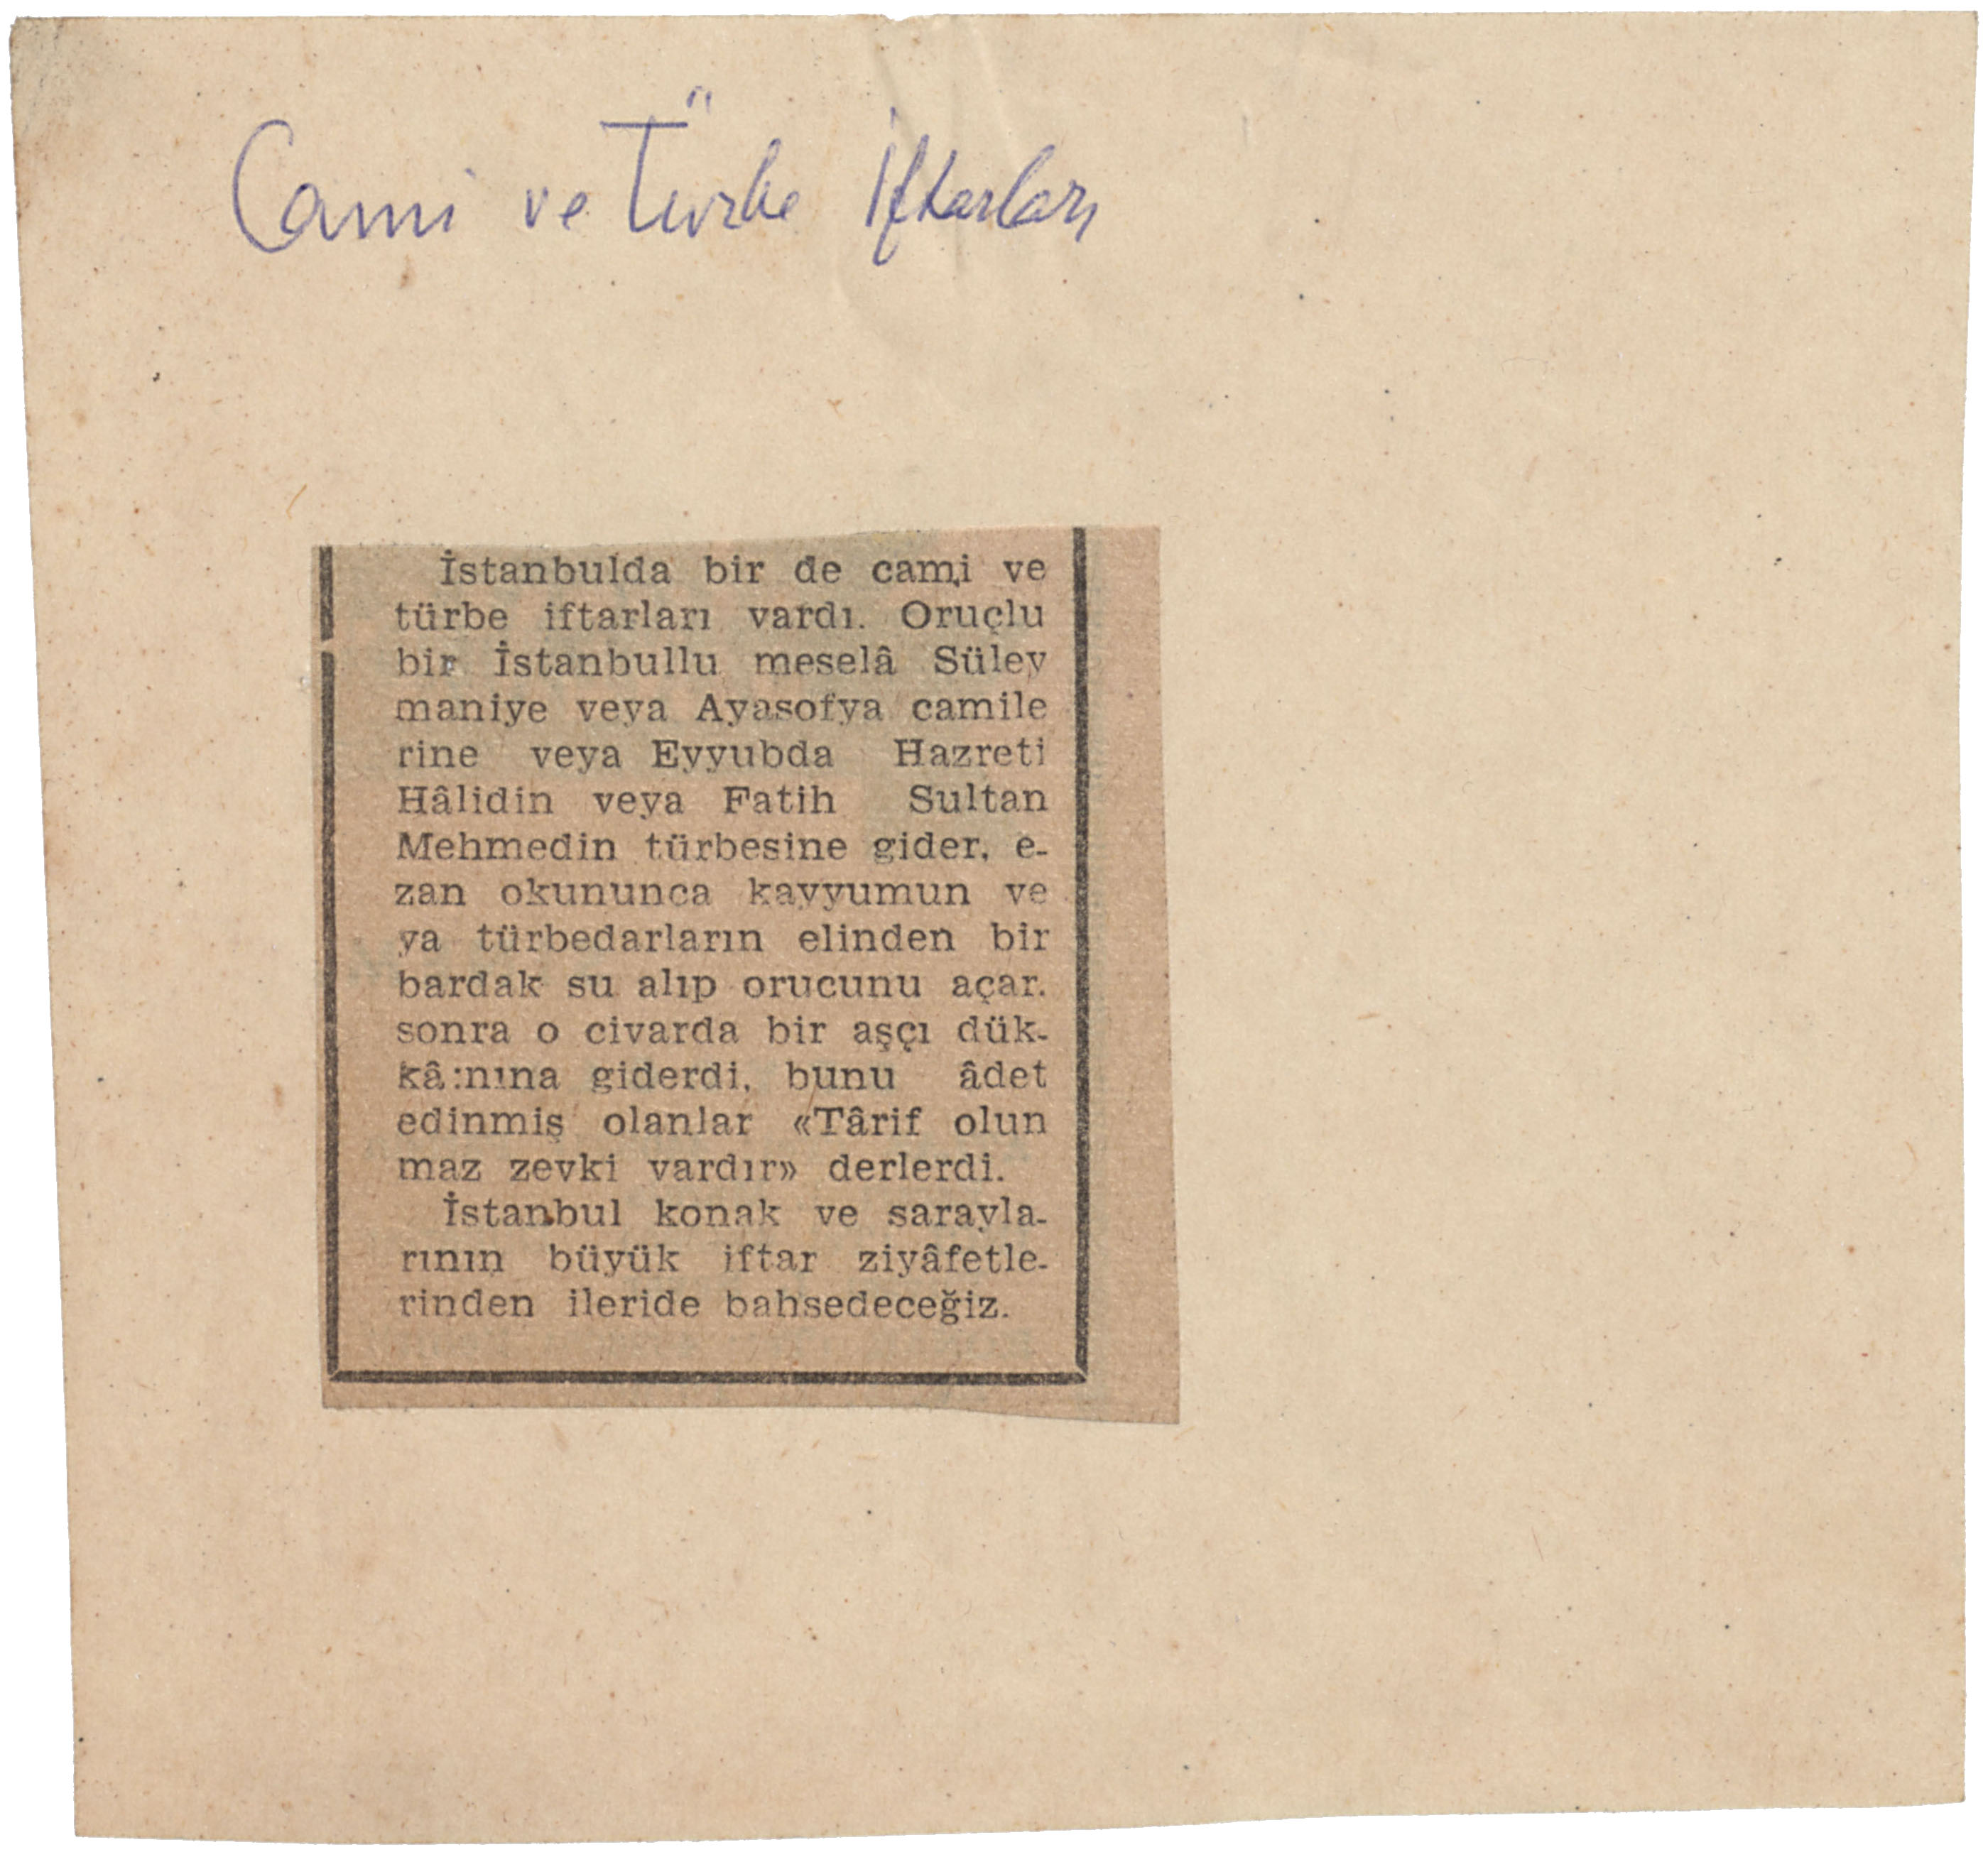 Cami ve Türbe İftarları
İstanbulda bir de cami ve
türbe iftarları vardı. Oruçlu
bir İstanbullu meselâ Süley
maniye veya Ayasofya camile
rine veya Eyyubda Hazreti
Hâlidin veya Fatih Sultan
Mehmedin türbesine gider, e-
zan okununca kayyumun ve
ya türbedarların elinden bir
bardak su alıp orucunu açar.
sonra o civarda bir aşçı dük-
kâ:nına giderdi, bunu âdet
edinmiş olanlar «Târif olun
maz zevki vardır» derlerdi.
İstanbul konak ve sarayla-
rının büyük iftar ziyâfetle-
rinden ileride bahsedeceğiz.